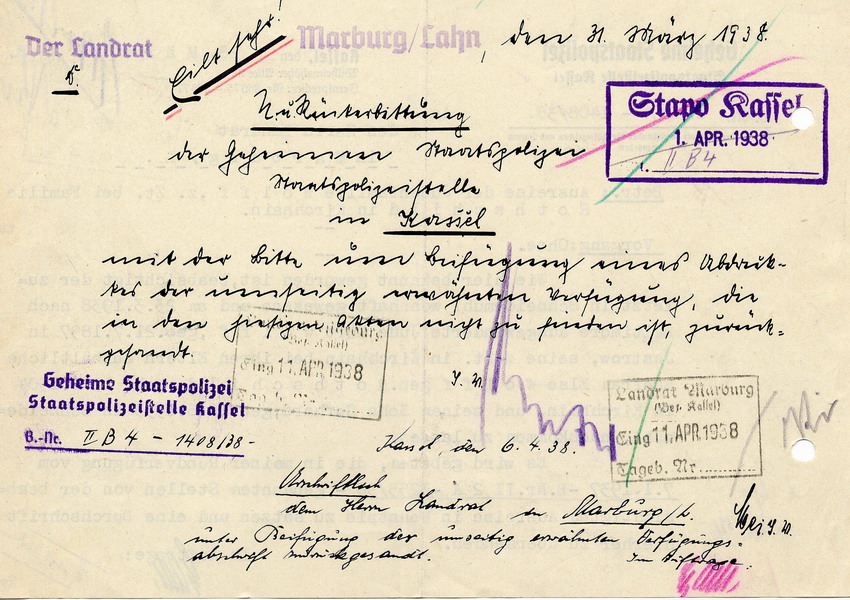 Der Landrat
Eilt sehr!
Marburg/Lahn, den 31. März 1938.
Stapo Kassel
1. APR. 1938
II B 4
U. Rückerbittung
der Geheimen Staatspolizei
Staatspolizeistelle
in Kassel
mit der Bitte um Beifügung eines Abdruk-
kes der umseitig erwähnten Verfügung, die
in den hiesigen Akten nicht zu finden ist, zurück-
gesandt.
J. V.
Landrat Marburg
(Bez. Kassel)
Eing 11. APR. 1938
Tageb. Nr.
Geheime Staatspolizei
Staatspolizeistelle Kassel
B.-Nr. II B 4 - 1408/38 -
Landrat Marburg
(Bez. Kassel)
Eing 11. APR. 1938
Tageb. Nr.
Kassel, den 6.4.38.
Urschriftlich
dem Herrn Landrat in Marburg/L.
unter Beifügung der umseitig erwähnten Verfügungs-
abschrift zurückgesandt.
Im Auftrage: